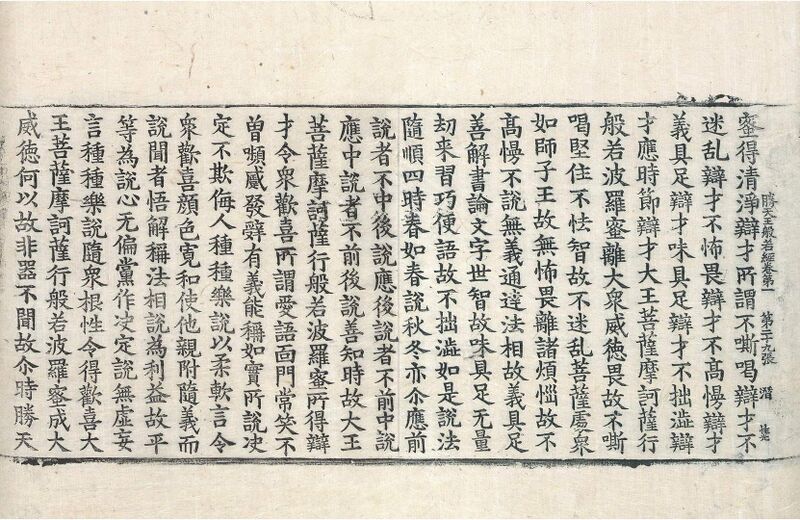 蜜得清淨辯才所謂不嘶喝辯才不
勝天王般若經卷第一 第二十九張 潛
迷乱辯才不怖畏辯才不高慢辯才
義具足辯才味具足辯才不拙澁辯
才應時節辯才大王菩薩摩訶薩行
般若波羅蜜離大衆威徳畏故不嘶
喝堅住不怯智故不迷乱菩薩處衆
如師子王故無怖畏離諸煩惱故不
高慢不說無義通達法相故義具足
善解書論文字世智故味具足无量
刧来習巧便語故不拙澁如是說法
隨順四時春如春說秋冬亦尒應前
說者不中後說應後說者不前中說
應中說者不前後說善知時故大王
菩薩摩訶薩行般若波羅蜜所得辯
才令衆歡喜所謂愛語面門常笑不
曽嚬蹙發辤有義能稱如實所說决
定不欺侮人種種樂說以柔軟言令
衆歡喜顔色寛和使他親附隨義而
說聞者悟解稱法相說為利益故平
等為說心无偏黨作决定說無虛妄
言種種樂說隨衆根性令得歡喜大
王菩薩摩訶薩行般若波羅蜜成大
威徳何以故非器不聞故尒時勝天